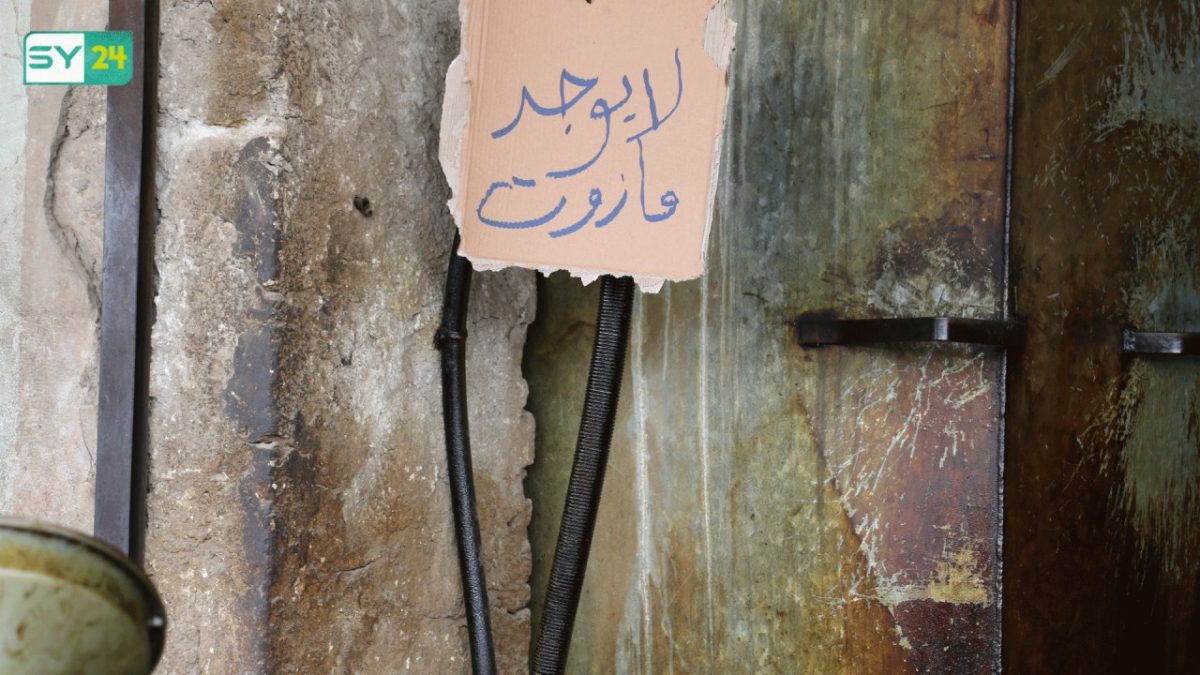 SY 24
لا يوجد
مازوت